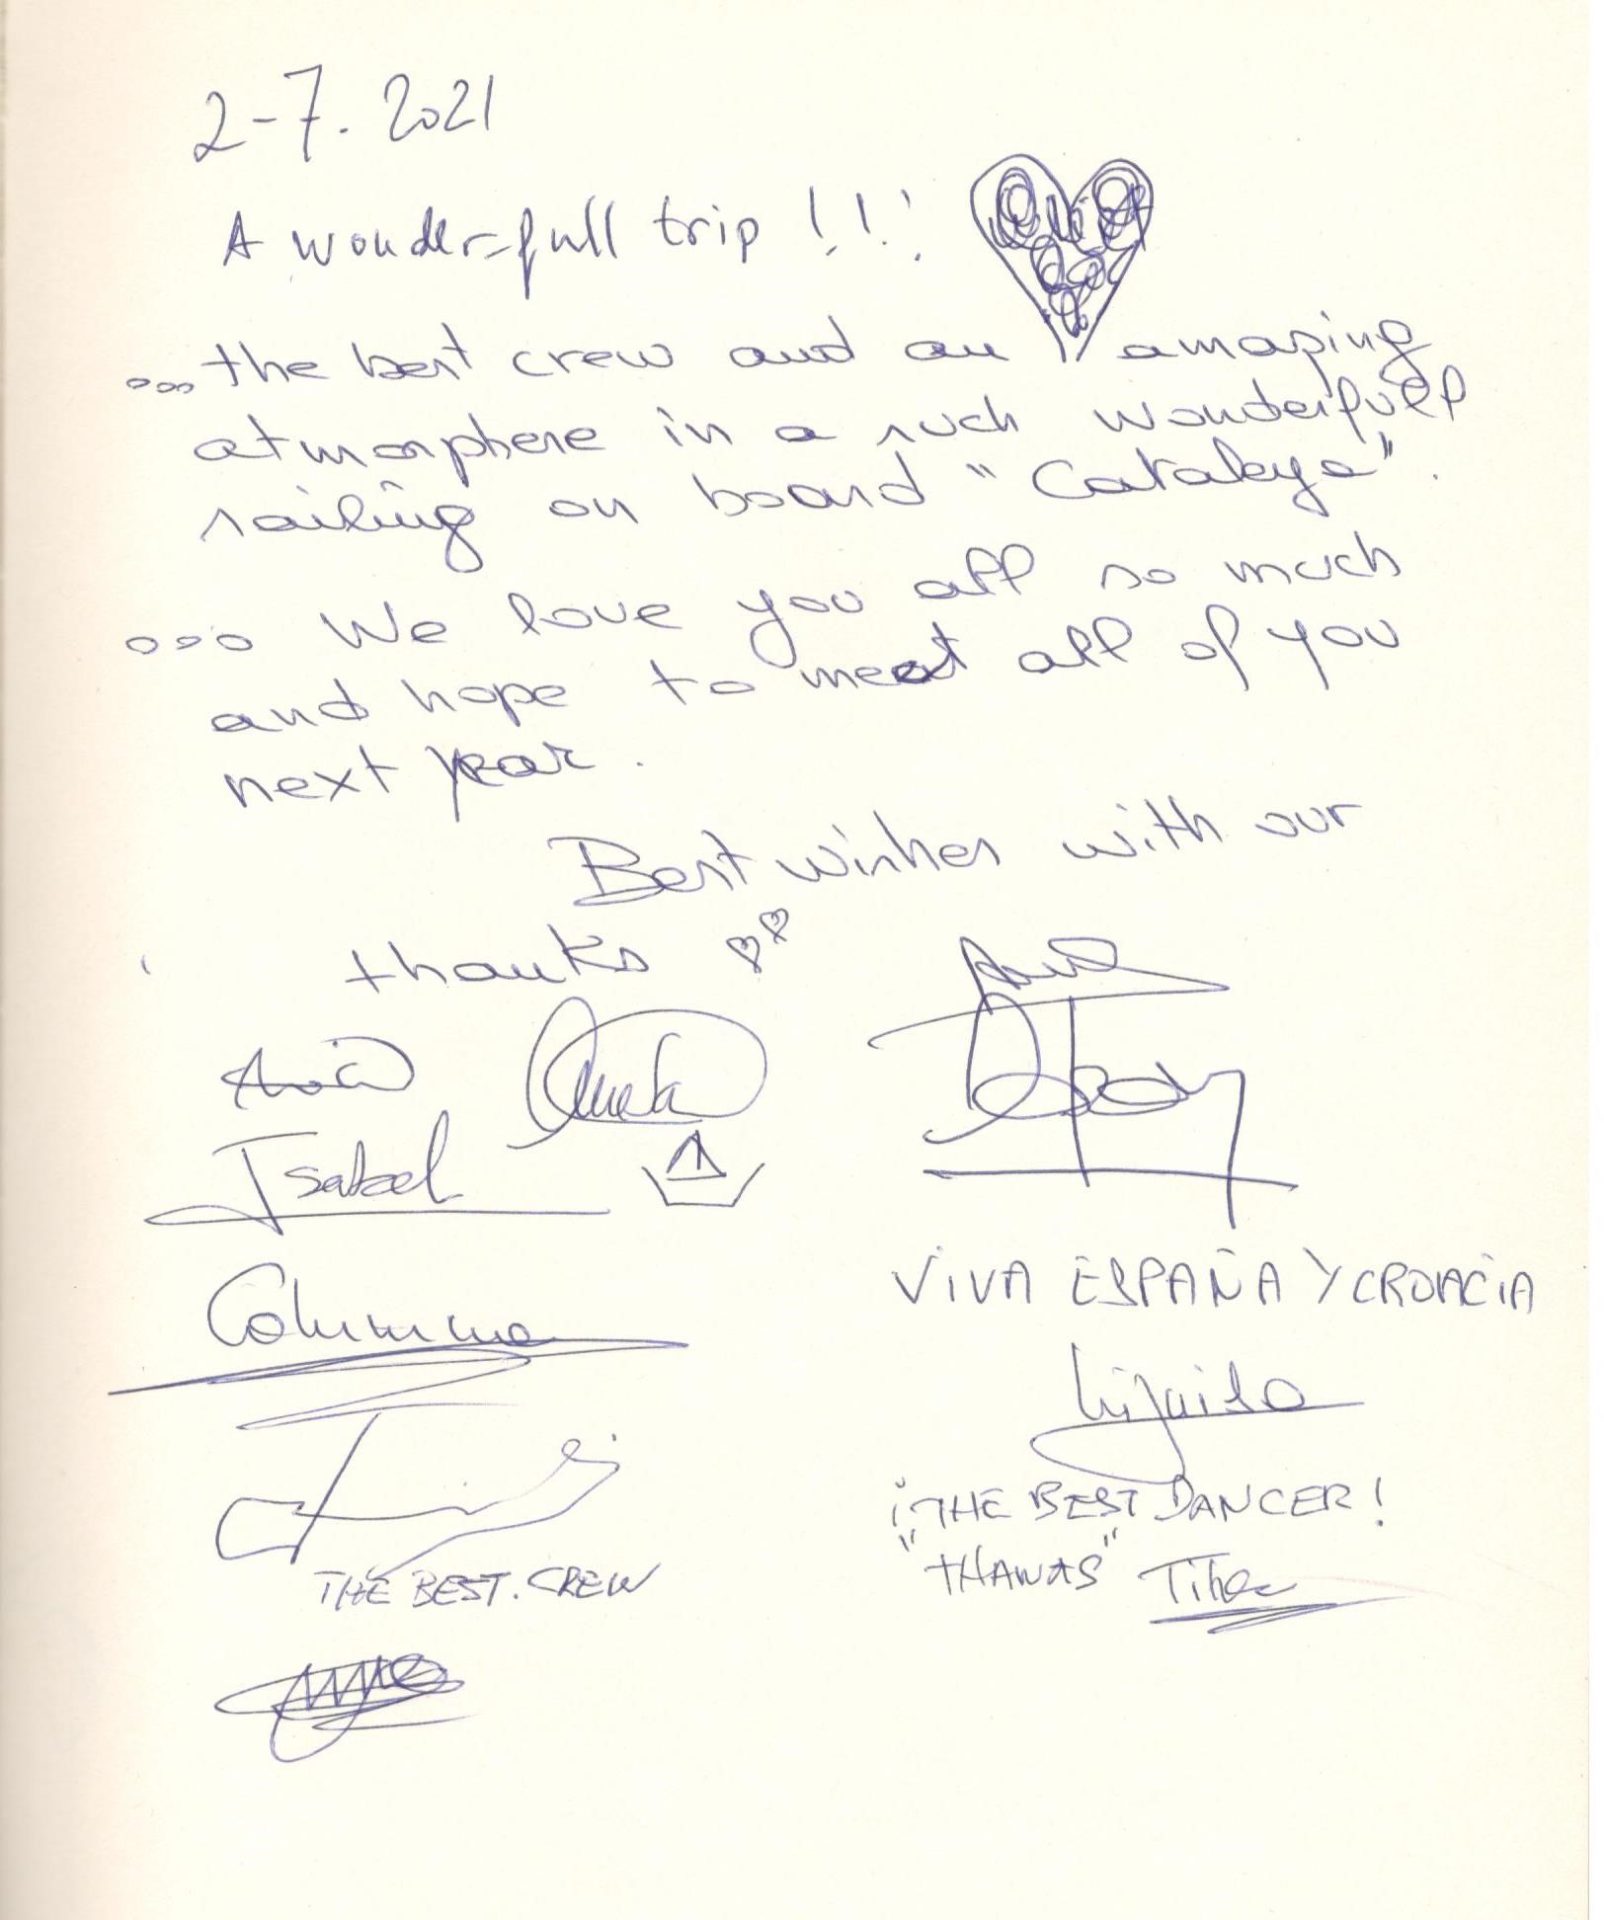 2-7. 2021
A wonder-full trip !!!
...the best crew and an amazing
atmosphere in a such wonderfull
sailing on board "Cataleya".
... We love you all so much
and hope to meet all of you
next year.
Best wishes with our
thanks
Isabel
Columma
THE BEST. CREW
VIVA ESPAÑA Y CROACIA
¡THE BEST DANCER!
"THANKS"